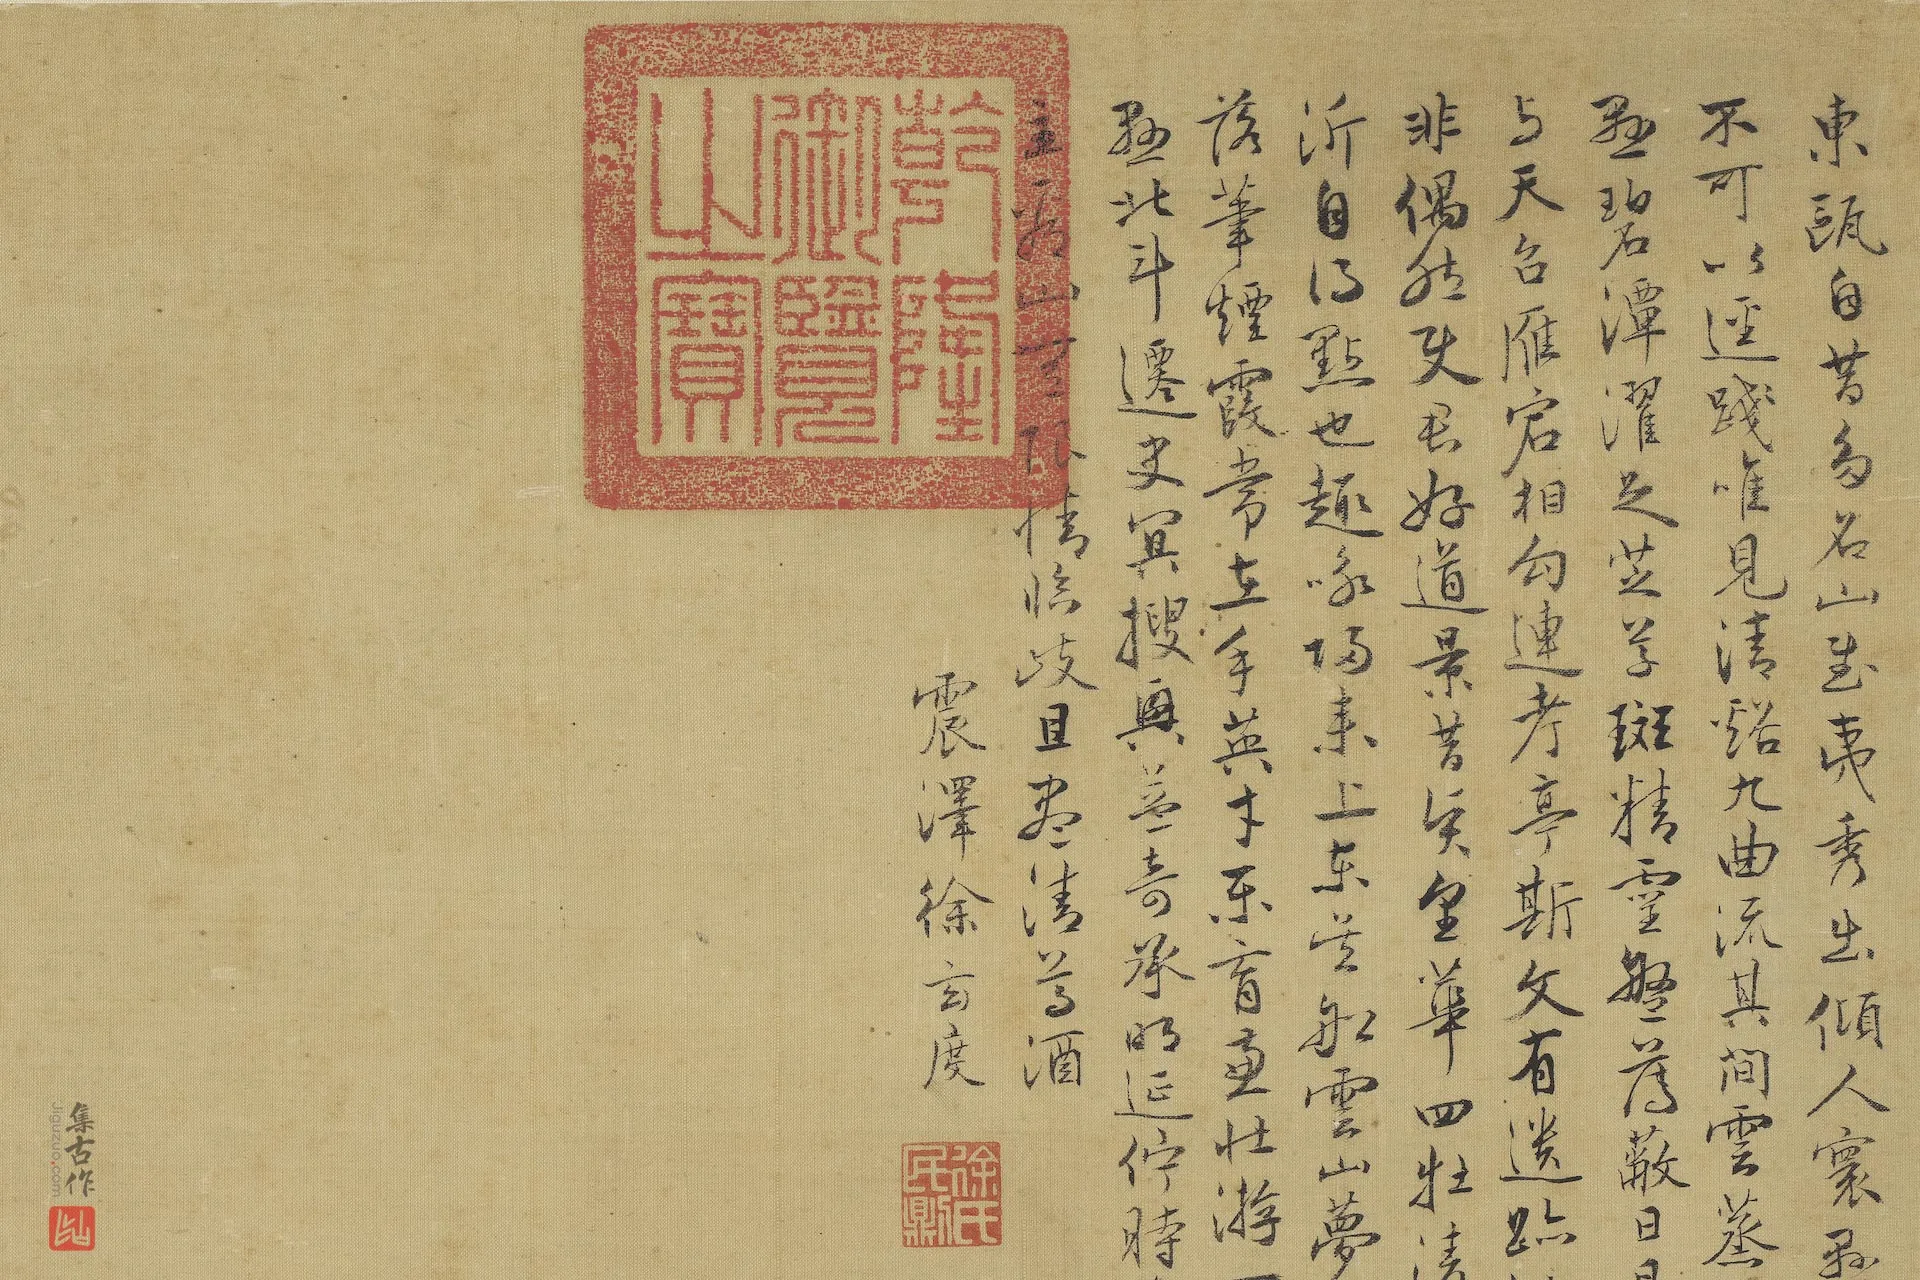 東甌自昔多名山武夷秀出傾人寰懸
不可以逕踐唯見清谿九曲流其間雲蒸
碧潭濯足芝草斑精靈盤薄蔽日
与天台雁宕相勾連考亭斯文有遺跡
非偶然史君好道景昔賢皇華四牡清
沂自得點也趣咏歸来上東嶽雲山夢
落筆煙霞常在手英才樂育兼壮游
北斗遷史冥搜興益奇承明延佇時
山川情臨歧且盡清尊酒
震澤徐玄度
乾隆御覽之寶
徐氏
集古作
Jiguzuo.com